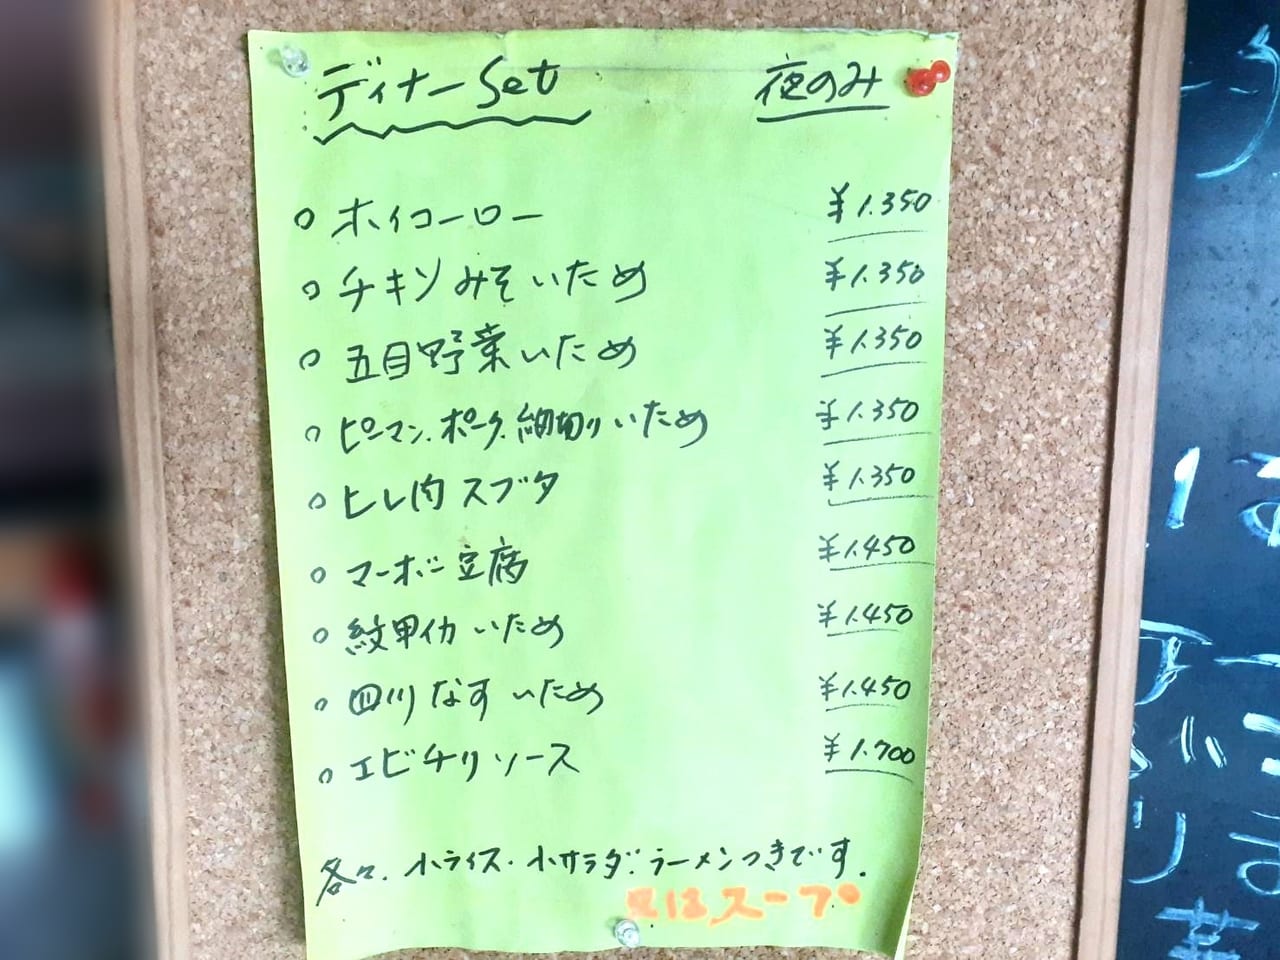 ディナーSet 夜のみ
○ ホイコーロー ¥1.350
○ チキンみそいため ¥1.350
○ 五目野菜いため ¥1.350
○ ピーマン.ポーク.細切りいため ¥1.350
○ ヒレ肉スブタ ¥1.350
○ マーボー豆腐 ¥1.450
○ 紋甲イカいため ¥1.450
○ 四川なすいため ¥1.450
○ エビチリソース ¥1.700
各々.小ライス.小サラダ.ラーメンつきです.
又はスープ